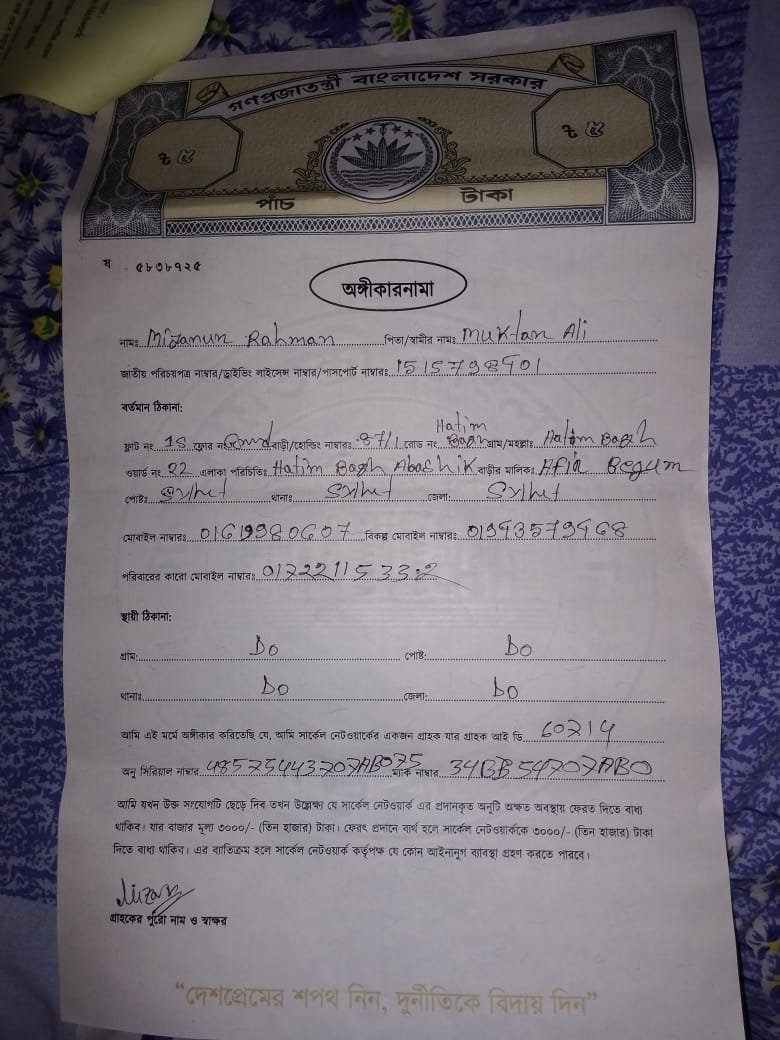 গণপ্রজাতন্ত্রী বাংলাদেশ সরকার
৳ ৫ ৳ ৫
পাঁচ টাকা
ষ ৫৮৩৮৭২৫
অঙ্গীকারনামা
নামঃ Mizanur Rahman পিতা/স্বামীর নামঃ Muktar Ali
জাতীয় পরিচয়পত্র নাম্বার/ড্রাইভিং লাইসেন্স নাম্বার/পাসপোর্ট নাম্বারঃ
বর্তমান ঠিকানা:
ফ্লাট নং 1S ফ্লোর নং Grnd বাড়ী/হোল্ডিং নাম্বারঃ 87/1 রোড নং Hatim Bagh গ্রাম/মহল্লাঃ Hatim Bagh
ওয়ার্ড নং 22 এলাকা পরিচিতিঃ Hatim Bagh Abashik বাড়ীর মালিকঃ Afia Begum
পোষ্টঃ Sylhet থানাঃ Sylhet জেলা: Sylhet
মোবাইল নাম্বারঃ 01619980607 বিকল্প মোবাইল নাম্বারঃ 01943579468
পরিবারের কারো মোবাইল নাম্বারঃ 01722115332
স্থায়ী ঠিকানা:
গ্রাম: Do পোষ্ট: Do
থানাঃ Do জেলা: Do
আমি এই মর্মে অঙ্গীকার করিতেছি যে, আমি সার্কেল নেটওয়ার্কের একজন গ্রাহক যার গ্রাহক আই ডি 60214
অনু সিরিয়াল নাম্বার 48575443707ABO75 ম্যাক নাম্বার 34BB54707ABO
আমি যখন উক্ত সংযোগটি ছেড়ে দিব তখন উল্লেক্ষ্য যে সার্কেল নেটওয়ার্ক এর প্রদানকৃত অনুটি অক্ষত অবস্থায় ফেরত দিতে বাধ্য
থাকিব। যার বাজার মূল্য ৩০০০/- (তিন হাজার) টাকা। ফেরৎ প্রদানে ব্যর্থ হলে সার্কেল নেটওয়ার্ককে ৩০০০/- (তিন হাজার) টাকা
দিতে বাধ্য থাকিব। এর ব্যতিক্রম হলে সার্কেল নেটওয়ার্ক কর্তৃপক্ষ যে কোন আইনানুগ ব্যবস্থা গ্রহণ করতে পারবে।
Mizan
গ্রাহকের পুরো নাম ও স্বাক্ষর
“দেশপ্রেমের শপথ নিন, দুর্নীতিকে বিদায় দিন”